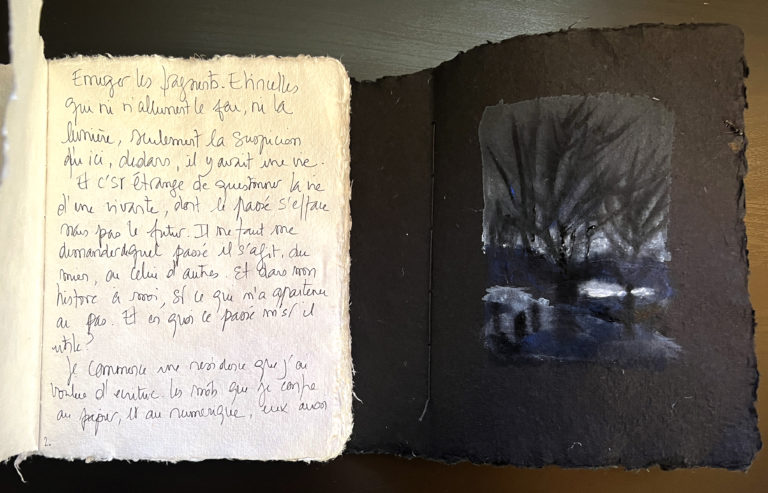 Erriger les fragments. Etincelles
qui ni n'allument le feu, ni la
lumière, seulement la suspicion
qu'ici, dedans, il y avait une vie.
Et c'est étrange de questionner la vie
d'une vivante, dont le passé s'efface
mais pas le futur. Il me faut me
demander duquel passé il s'agit, du
mien, ou celui d'autres. Et dans mon
histoire à moi, si ce qui m'a appartenu
ou pas. Et en quoi ce passé m'est il
utile?
Je commence une residence que j'ai
voulue d'ecriture. Les mots que je confie
au papier, et au numerique, eux aussi
2.